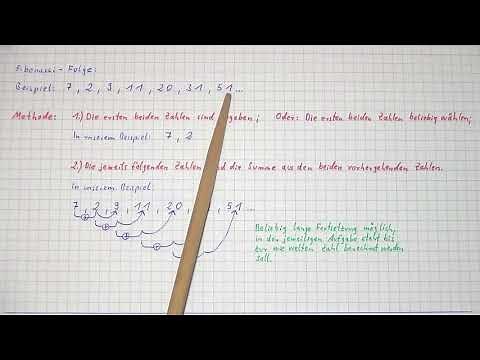 Fibonacci-Folge:
Beispiel: 7, 2, 9, 11, 20, 31, 51...
Methode: 1.) Die ersten beiden Zahlen sind gegeben; Oder: Die ersten beiden Zahlen beliebig wählen;
In unserem Beispiel: 7, 2
2.) Die jeweils folgenden Zahlen sind die Summe aus den beiden vorhergehenden Zahlen.
In unserem Beispiel:
7, 2, 9, 11, 20, , 51 ...
Beliebig lange Fortsetzung möglich,
in der jeweiligen Aufgabe steht bis
zur wie vielten Zahl berechnet werden
soll.